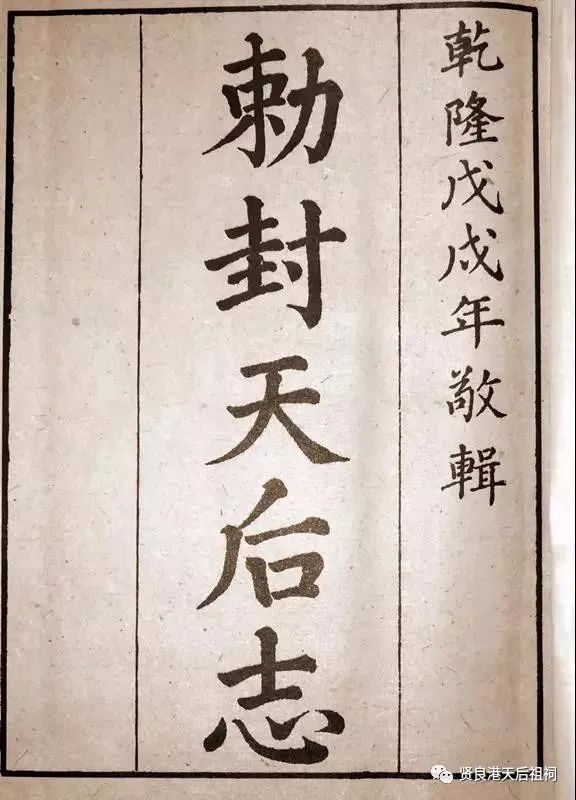 乾隆戊戌年敬輯
勅封天后志
贤良港天后祖祠